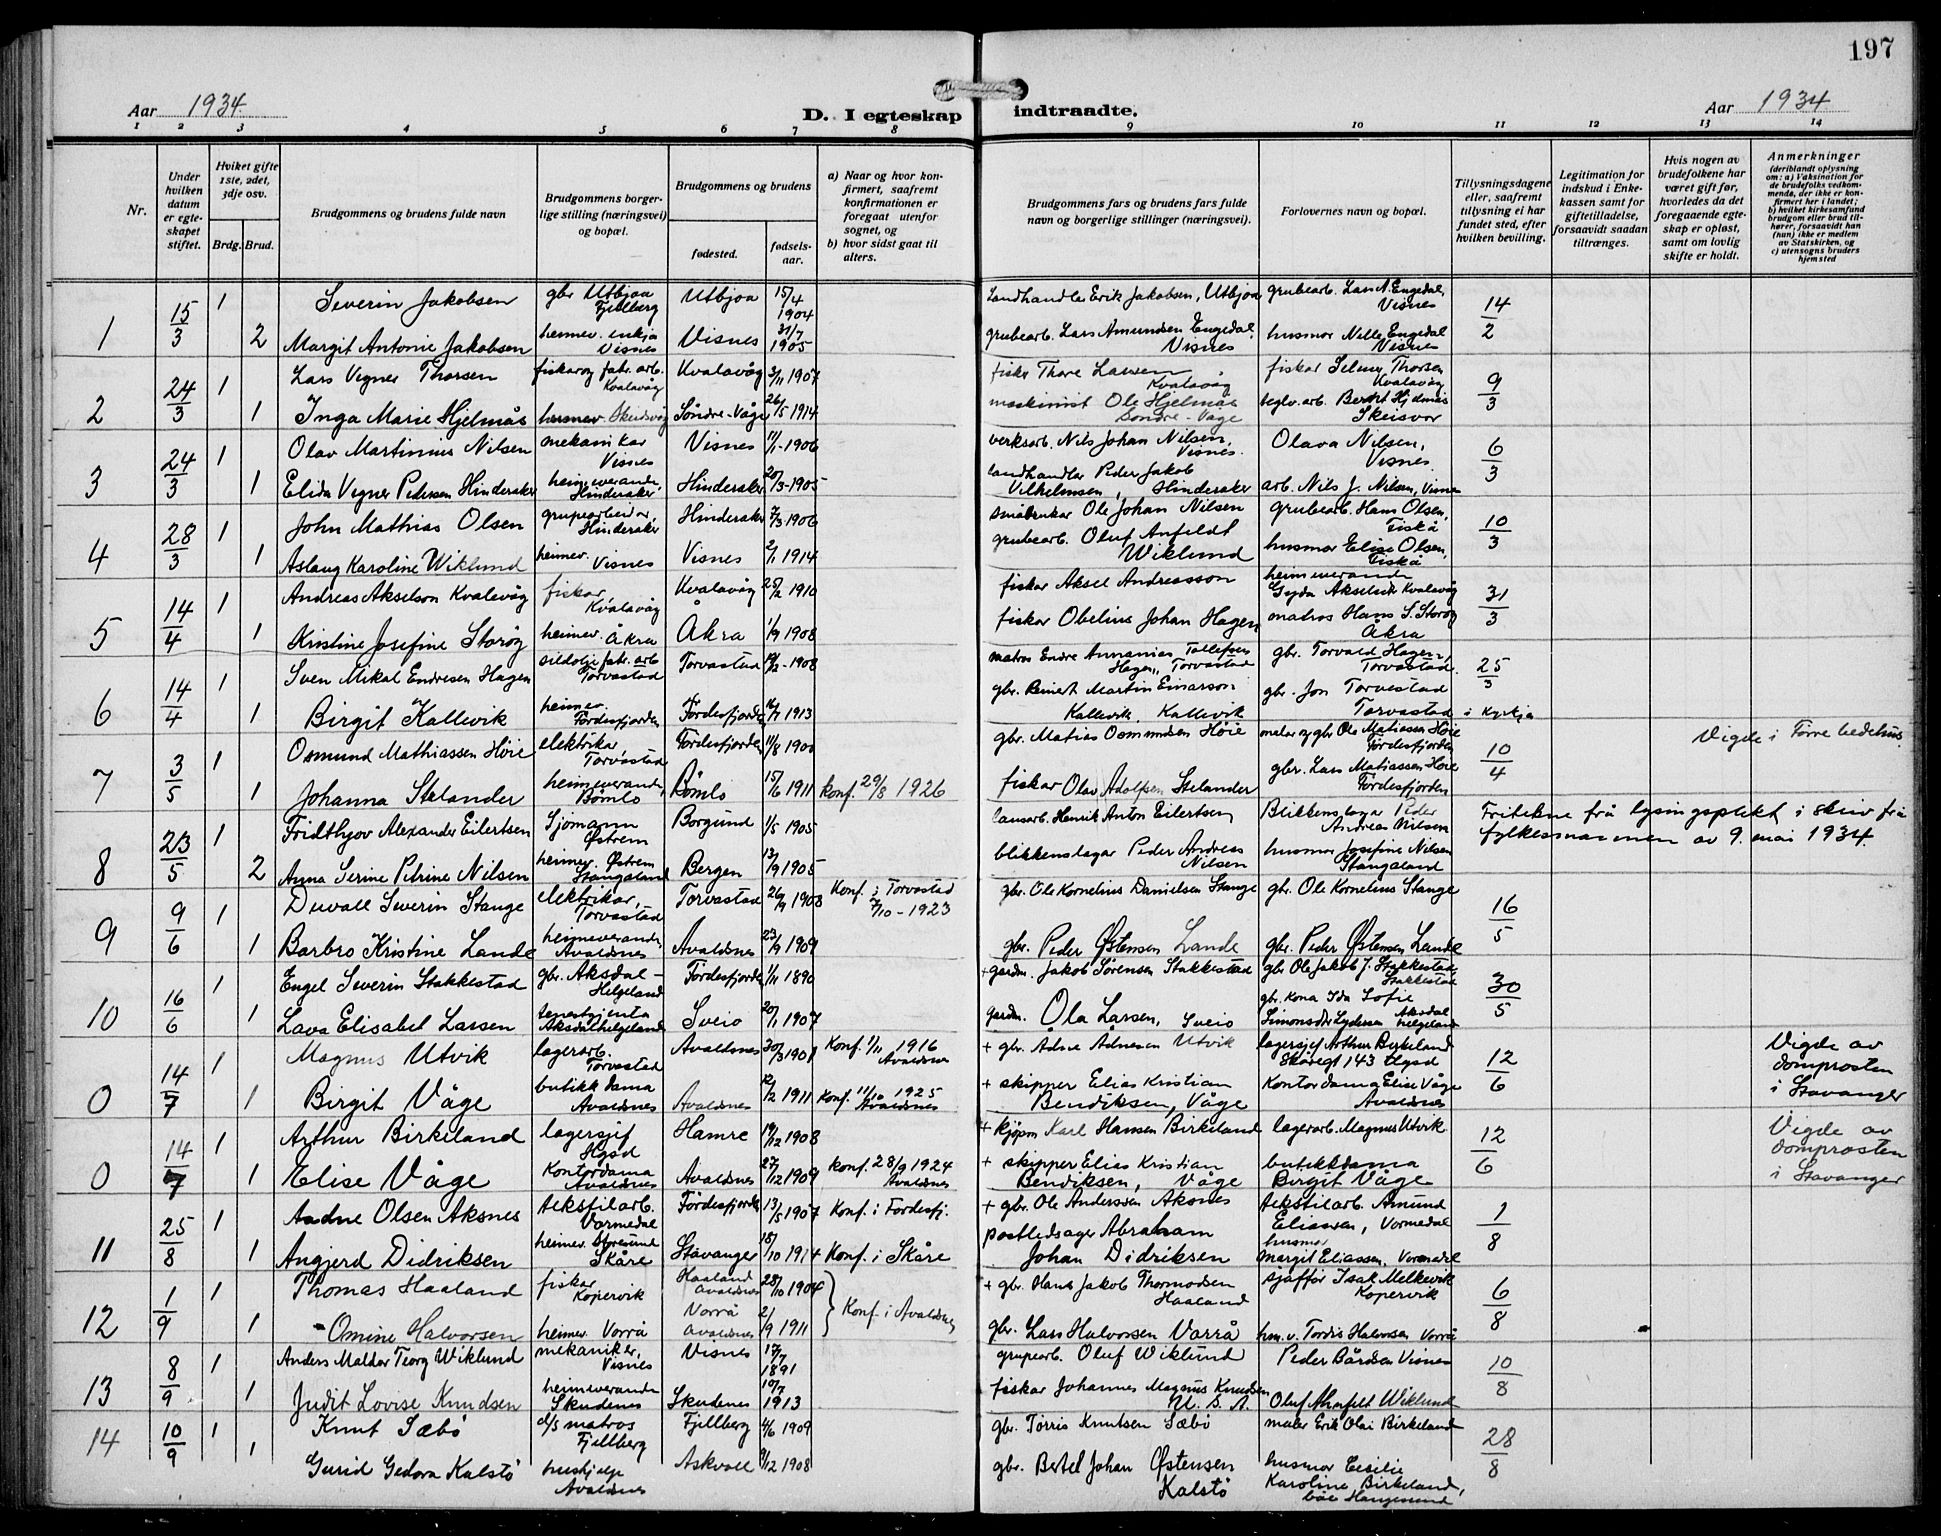 197
Aar 1934.
D. I egteskap indtraadte.
Aar 1934
1 2 3 4 5 6 7 8 9 10 11 12 13 14
Nr.
Under hvilken datum er egteskapet stiftet.
Hviket gifte 1ste, 2det, 3dje osv.
Brdg. Brud.
Brudgommens og brudens fulde navn
Brudgommens borgerlige stilling (næringsvei) og bopæl.
Brudgommens og brudens
fødested.
fødselsaar.
a) Naar og hvor konfirmert, saafremt konfirmationen er foregaat utenfor sognet, og
b) hvor sidst gaat til alters.
Brudgommens fars og brudens fars fulde navn og borgerlige stillinger (næringsvei).
Forlovernes navn og bopæl.
Tillysningsdagene eller, saafremt tillysning ei har fundet sted, efter hvilken bevilling.
Legitimation for indskud i Enkekassen samt for giftetilladelse, forsaavidt saadan tiltrænges.
Hvis nogen av brudefolkene har været gift før, hvorledes da det foregaaende egteskap er opløst, samt om lovlig skifte er holdt.
Anmerkninger (deriblandt oplysning om: a) Vaksination for de brudefolks vedkommende, der ikke er konfirmert her i landet; b) hvilket kirkesamfund brudgom eller brud tilhører, forsaavidt han (hun) ikke er medlem av Statskirken, og c) utensogns bruders hjemsted
1 15/3 1 Severin Jakobsen gbr Utbjoa Fjellberg Utbjoa 15/4 1904 Landhandler Erik Jakobsen, Utbjoa grubearb. Lars A. Engedal, Visnes 14/2
2 Margit Antonie Jakobsen heimev. enkja Visnes Visnes 31/7 1905 grubearb. Lars Amundsen Engedal Visnes husmor Nelly Engedal Visnes
2 24/3 1 Lars Vigner Thorsen fiskar og fabr. arb. Kvalavåg Kvalavåg 3/11 1907 fisker Thore Larsen Kvalavåg fiskar Selmer Thorsen Kvalavåg 9/3
1 Inga Marie Hjelmås heimev. Skeidsvoj Söndre-Våge 26/5 1914 maskinist Ole Hjelmås Söndre-Våge teglv. arb. Bernt Hjelmås Skeisvor
3 24/3 1 Olav Martinius Nilsen mekanikar Visnes Visnes 11/1-1906 verksarb. Nils Johan Nilsen, Visnes. Olava Nilsen, Visnes 6/3
1 Elida Vigner Pedersen Hinderaker heimeverande, Hinderaker Hinderaker 20/3-1905 landhandler Peder Jakob Vilhelmsen, Hinderaker arb. Nils J. Nilsen, Visnes
4 28/3 1 John Mathias Olsen grupearbeidar, Hinderaker Hinderaker 7/3-1906 småbrukar Ole Johan Nilsen grubearb. Hans Olsen, Fiskå 10/3
1 Aslaug Karoline Wiklund heimev. Visnes Visnes 2/1 1914 grubearb. Oluf Anfeldt Wiklund husmor Elise Olsen, Fiskå
5 14/4 1 Andreas Akselson Kvalevåg fiskar, Kvalavåg Kvalavåg 25/2 1910 fiskar Aksel Andreasson heimeverande Gyda Akselsdr Kvalavåg 31/3
1 Kristine Josefine Storöy heimev. Åkra Åkra 1/9 1908 fiskar Obelius Johan Hagen matros Hans S. Storöy Åkra
6 14/4 1 Sven Mikal Endresen Hagen sildolje fabr. arb Torvastad Torvastad 12-1908 matros Endre Annanias Tollefsen Hagen, Torvastad gbr. Torvald Hagen, Torvastad. 25/3
1 Birgit Kallevik heimev. Fördesfjorden Fördesfjorden 1913 gbr. Bernert Martin Einarson Kallevik, Kallevik gbr. Jon Torvestad Torvastad i kyrkja
7 3/5 1 Osmund Mathiassen Höie elektrikar, Torvastad Fördesfjorden 11/8 1900 gbr. Matias Osmundsen Höie maler og gbr Ole Matiassen Höie Fördesfjorden 10/4 Vigde i Förre bedehus.
1 Johanna Stelander heimeverande, Bömlo Bömlo 15/6 1911 konf. 29/8 1926 fiskar Olav Adolfsen Stelander gbr. Lars Matiassen Höie Fördesfjorden
8 23/5 1 Fridthjov Alexander Eilertsen Sjömann Østrem Borgund 1/5 1905 lausarb. Henrik Anton Eilertsen Blikkenslagar Peder Andreas Nilsen Fritekne frå lysingsplikt i skriv frå fylkesmannen av 9. mai 1934.
2 Anna Serine Petrine Nilsen heimev. Østrem Stangaland Bergen 13/9 1905 blikkenslagar Peder Andreas Nilsen husmor Josefine Nilsen Stangaland
9 9/6 1 Duvall Severin Stange elektrikar, Torvastad Torvastad 26/9 1908 Konf. i Torvastad 7/10-1923 gbr. Ole Kornelius Danielsen Stange gbr. Ole Kornelius Stange 16/5
1 Barbro Kristine Lande heimeverande, Avaldsnes Avaldsnes 23/9 1909 gbr. Peder Østensen Lande gbr. Peder Østensen Lande
10 16/6 1 Engel Severin Stakkestad gbr. Aksdal-Helgeland Fördesfjorden 1/11 1890 + gardm. Jakob Sörensen Stakkestad gbr Ole Jakob J. Stakkestad, Stakkestad 30/5
1 Lava Elisabet Larsen tenestgjenta Aksdalhelgeland Sveio 20/1 1907 gardm. Ola Larsen, Sveio gbr. kona Ida Sofie Simonsdtr Lydersen Aksdal helgeland
0 14/7 1 Magnus Utvik lagerarb. Torvastad Avaldsnes 30/3 1901 Konf. 1/11 1916 Avaldsnes + gbr. Adne Ådnesen Utvik lagersjef Arthur Birkeland Skåregt 143 Hgsd 12/6 Vigde av domprosten i Stavanger
1 Birgit Våge butikkdama Avaldsnes Avaldsnes 12/2 1911 Konf. 11/10 1925 Avaldsnes + skipper Elias Kristian Bendiksen, Våge Kontordama Elise Våge Avaldsnes
0 14/7 1 Arthur Birkeland lagersjef Hgsd Hamre 19/12 1908 + kjöpm Karl Hansen Birkeland lagerarb. Magnus Utvik 12/6 Vigde av domprosten i Stavanger
1 Elise Våge Kontordama Avaldsnes Avaldsnes 27/12 1909 konf. 28/9 1924 Avaldsnes + skipper Elias Kristian Bendiksen, Våge butikkdama Birgit Våge
11 25/8 1 Andne Olsen Aksnes tekstilarb. Vormedal Fördesfjorden 13/5 1907 Konf. i Fördesfj. + gbr. Ole Anderssen Aksnes tekstilarb. Amund Eliassen, Vormedal 1/8
1 Angjerd Didriksen heimev. Storesund Skåre Stavanger 15/10 1914 Konf. i Skåre postledsager Abraham Johan Didriksen husmor Margit Eliassen, Vormedal
12 1/9 1 Thomas Haaland fiskar Kopervik Haaland Avaldsnes 28/10 1904 Konf. i Avaldsnes + gbr. Hans Jakob Thormodsen Haaland sjåffør Isak Melkevik Kopervik 6/8
1 Omine Halvorsen heimev. Vorrå Vorrå Avaldsnes 21/9 1911 gbr. Lars Halvorsen Varrå hm.v. Tordis Halvorsen Vorrå
13 8/9 1 Anders Maldor Teorg Wiklund mekaniker, Visnes Visnes 17/7 1891 grupearb. Oluf Wiklund Peder Bårdsen Visnes 10/8
1 Judit Lovise Knudsen heimeverande Skudenes Skudenes 10/7 1913 fiskar Johannes Magnus Knudsen U. S. A. Oluf Ahnfelt Wiklund
14 10/9 1 Knut Sæbö d/s matros Fjellberg Fjellberg 4/6 1909 gbr. Törris Knutsen Sæbö maler Erik Olai Birkeland 28/8
1 Gurid Gedora Kalstö hushjelp Avaldsnes Askvoll 9/12 1908 gbr. Bertel Johan Østensen Kalstö husmor Cecilie Karoline Birkeland, båe Haugesund